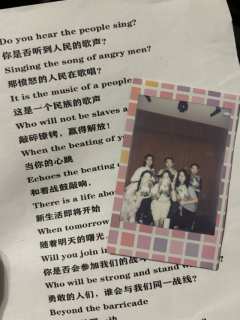 Do you hear the people sing?
你是否听到人民的歌声?
Singing the song of angry men?
那愤怒的人民在歌唱?
It is the music of a people
这是一个民族的歌声
Who will not be slaves a
敲碎镣铐，赢得解放!
When the beating of yo
当你的心跳
Echoes the beating
和着战鼓敲响，
There is a life abo
新生活即将开始
When tomorrow
随着明天的曙光
Will you join in
你是否会参加我们的战斗
Who will be strong and stand w
勇敢的人们，谁会与我们同一战线?
Beyond the barricade